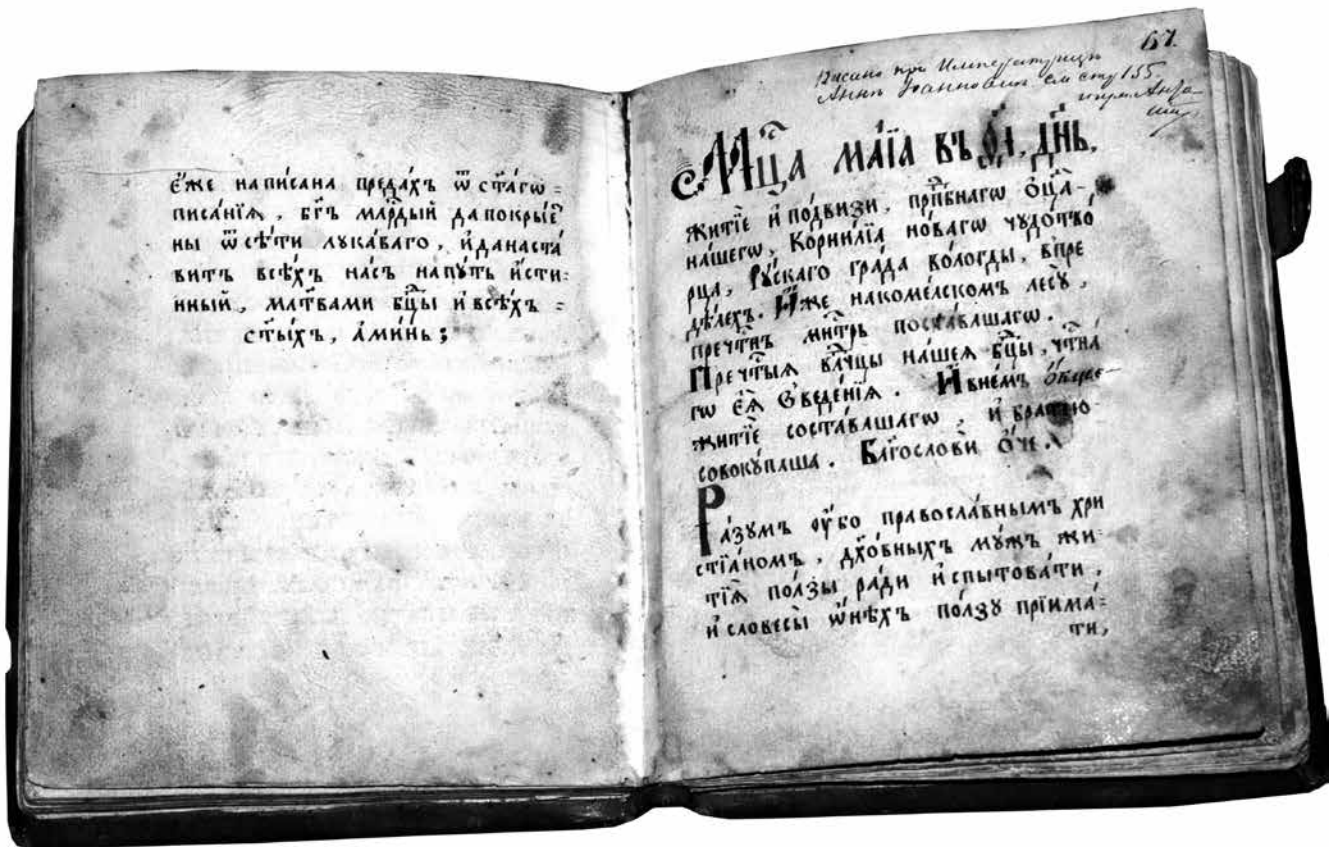 є҆́же написана предахъ ѿ ст҃а́гѡ=
писа́нїѧ, бг҃ъ млⷭ҇рдый да покрые҆
ны ѿ сѣ́ти лука́ваго, и҆ данаста́
витъ всѣ́хъ на́съ напу́ть и҆́сти=
инный, мл҃твами бц҃ы и҆ всѣ́хъ=
ст҃ы́хъ, а҆ми́нь;
67.
Писано при Императрицѣ
Аннѣ Іоанновнѣ см стр 155.
Мцⷭ҇а ма́їа въ ѳ҃і, дн҃ь,
житїѐ и҆ по́двизи, прпⷣбнагѡ ѻ҆ц҃а-
на́шегѡ, Корни́лїа но́вагѡ чудотво́
рца, Ру́скаго гра́да во́логды, впре
дѣ́лехъ. И҆́же накоме́лскомъ лесу̀,
пречⷭ҇тнъ мнⷭ҇трь поста́вшагѡ.
Пречⷭ҇тыѧ влⷣчцы на́шеѧ бц҃ы, чтⷭ҇на́
гѡ є҆ѧ̀ введе́нїѧ. И҆ вне́мъ
житїѐ соста́вашагѡ, и҆ бра́тїю-
совоку́пльша. Бл҃гословѝ ѻ҆́ч҃е.
Ра́зумъ ᲂу҆́бо правосла́внымъ хри
стїа́номъ, дх҃о́вныхъ му́жъ жи-
тїѧ̀ по́лзы ра́ди и҆спытова́ти,
и҆ словесы̀ ѡ҆ни́хъ по́лзꙋ прїима́=
ти,